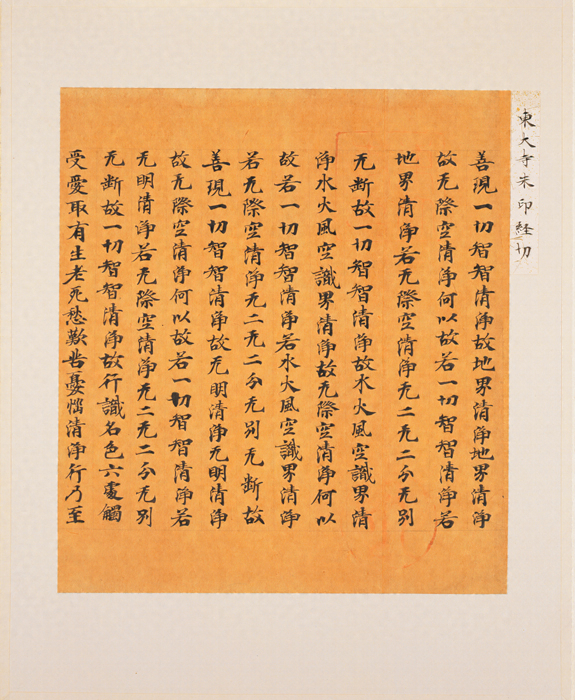 東大寺朱印経切
善現一切智智清淨故地界清淨地界清淨
故无際空清淨何以故若一切智智清淨若
地界清淨若无際空清淨无二无二分无别
无断故一切智智清淨故水火風空識界清
淨水火風空識界清淨故无際空清淨何以
故若一切智智清淨若水火風空識界清淨
若无際空清淨无二无二分无别无断故
善現一切智智清淨故无明清淨无明清淨
故无際空清淨何以故若一切智智清淨若
无明清淨若无際空清淨无二无二分无别
无断故一切智智清淨故行識名色六處觸
受愛取有生老死愁歎苦憂惱清淨行乃至